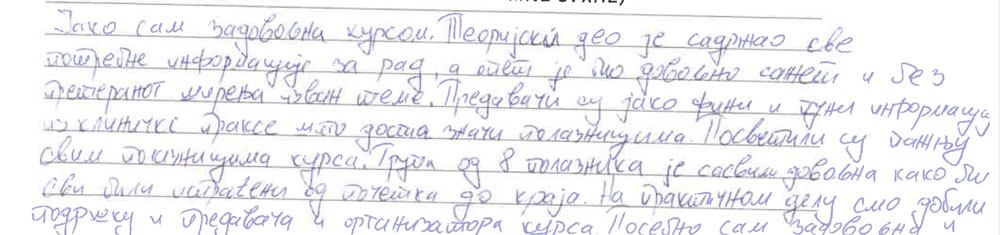 Јако сам задовољна курсом. Теоријски део је садржао све
потребне информације за рад, а опет је био довољно сажет и без
претераног ширења изван теме. Предавачи су јако фини и пуни информација
из клиничке праксе што доста значи полазницима. Посветили су пажњу
свим полазницима курса. Група од 8 полазника је сасвим довољна како би
сви били испраћени од почетка до краја. На практичном делу смо добили
подршку и предавача и организатора курса. Посебно сам задовољна и